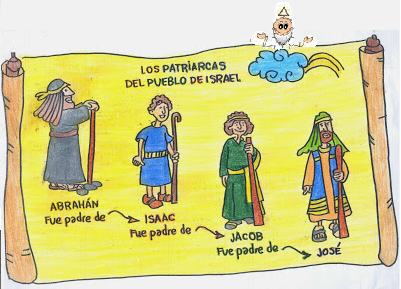 LOS PATRIARCAS
DEL PUEBLO DE ISRAEL
ABRAHÁN
Fue padre de
ISAAC
Fue padre de
JACOB
Fue padre de
JOSÉ